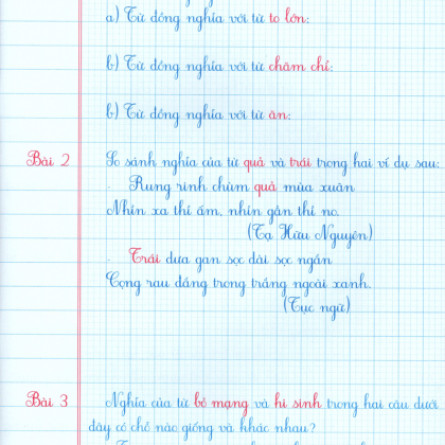 a) Từ đồng nghĩa với từ to lớn:
b) Từ đồng nghĩa với từ chăm chỉ:
b) Từ đồng nghĩa với từ ăn:
Bài 2 So sánh nghĩa của từ quả và trái trong hai ví dụ sau:
Rung rinh chùm quả mùa xuân
Nhìn xa thì ấm, nhìn gần thì no.
(Tạ Hữu Nguyên)
Trái dưa gan sọc dài sọc ngắn
Cọng rau đắng trong trắng ngoài xanh.
(Tục ngữ)
Bài 3 Nghĩa của từ bỏ mạng và hi sinh trong hai câu dưới
đây có chỗ nào giống và khác nhau?